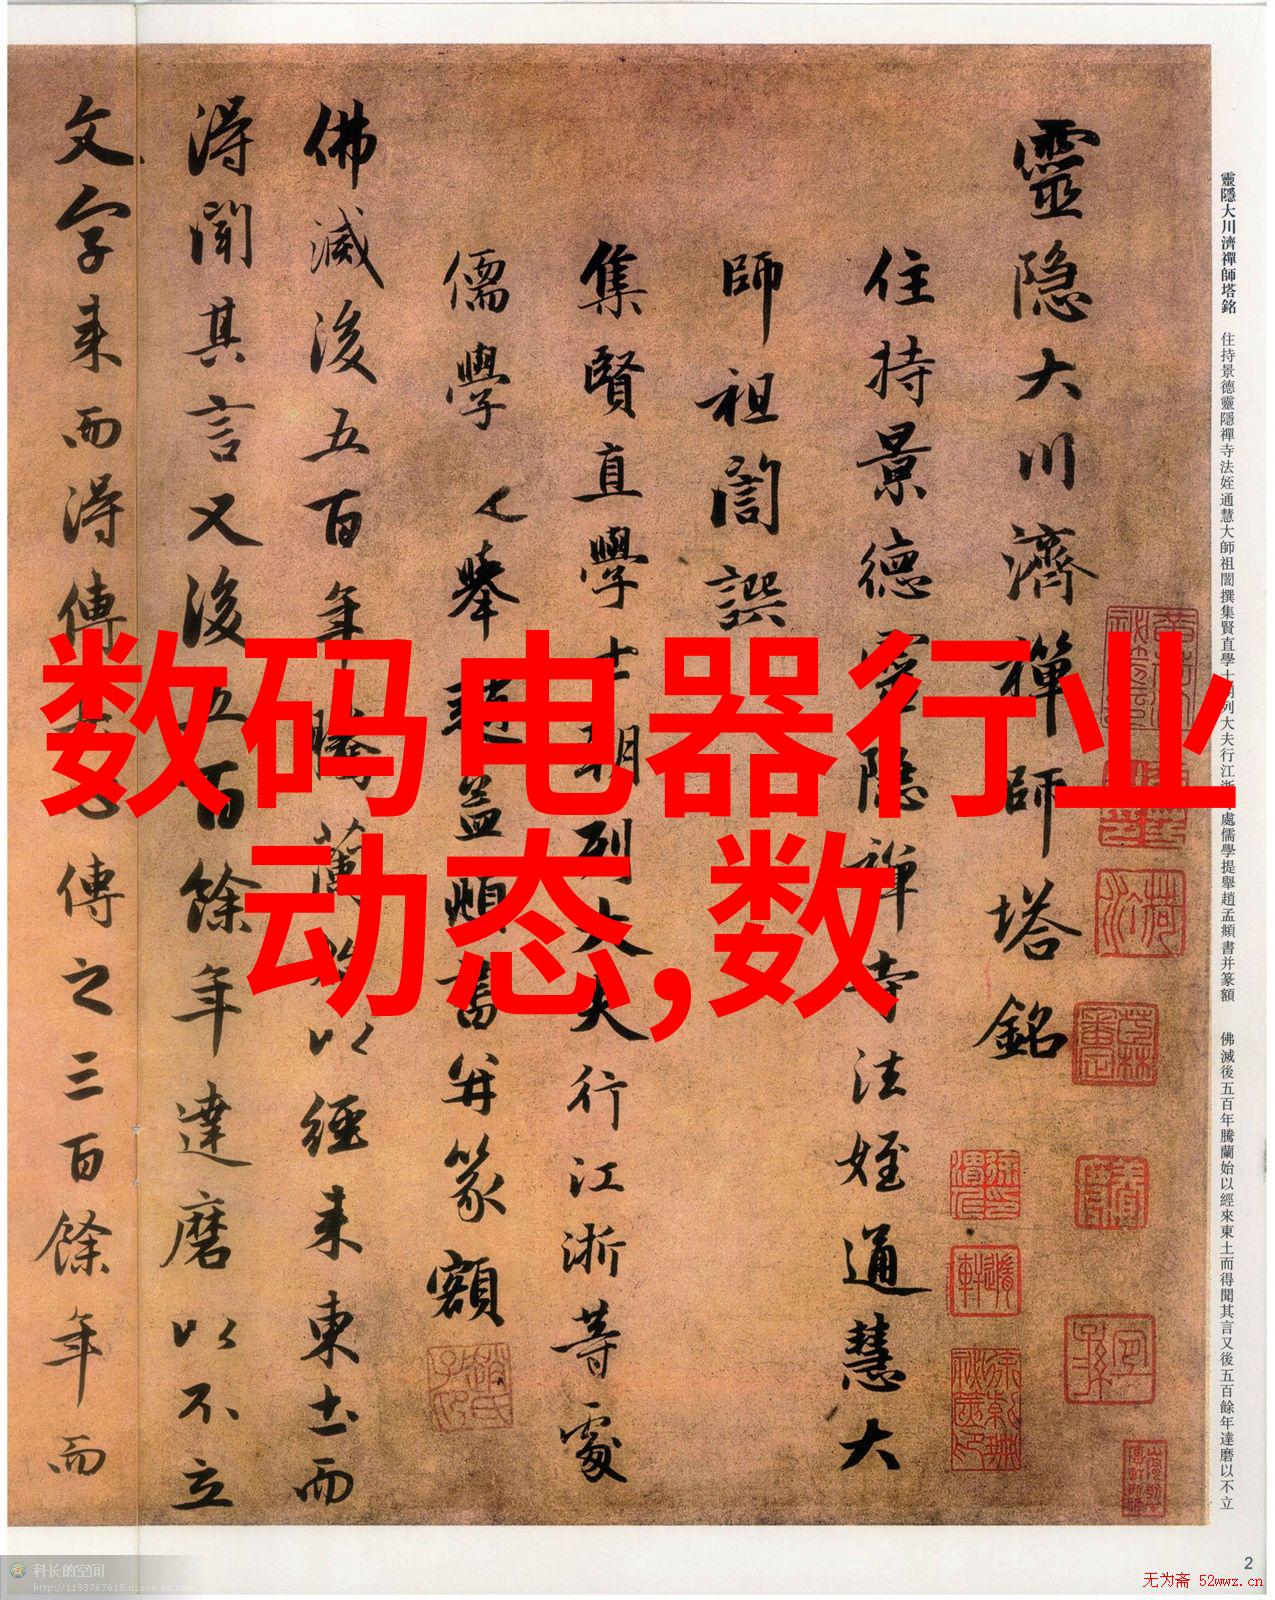 数码电器行业
动态,数
靈隐大川濟禅師塔銘
住持景德靈隐禅寺法姪通慧大
師祖誾譔
集賢直學士朝列大夫行江浙等處
儒學提舉趙孟頫書并篆額
佛滅後五百年騰蘭始以經来東土而
得聞其言又後五百餘年達磨以不立
文字来而得傳
傳之三百餘年而
靈隱大川濟禪師塔銘 住持景德靈隱禪寺法姪通慧大師祖誾撰集賢直學士朝列大夫行江浙等處儒學提舉趙孟頫書并篆額 佛滅後五百年騰蘭始以經來東土而得聞其言又後五百餘年達磨以不立
2
科长的空间
http://1193767618.qzone.qq.com
无为斋 52wwz.cn